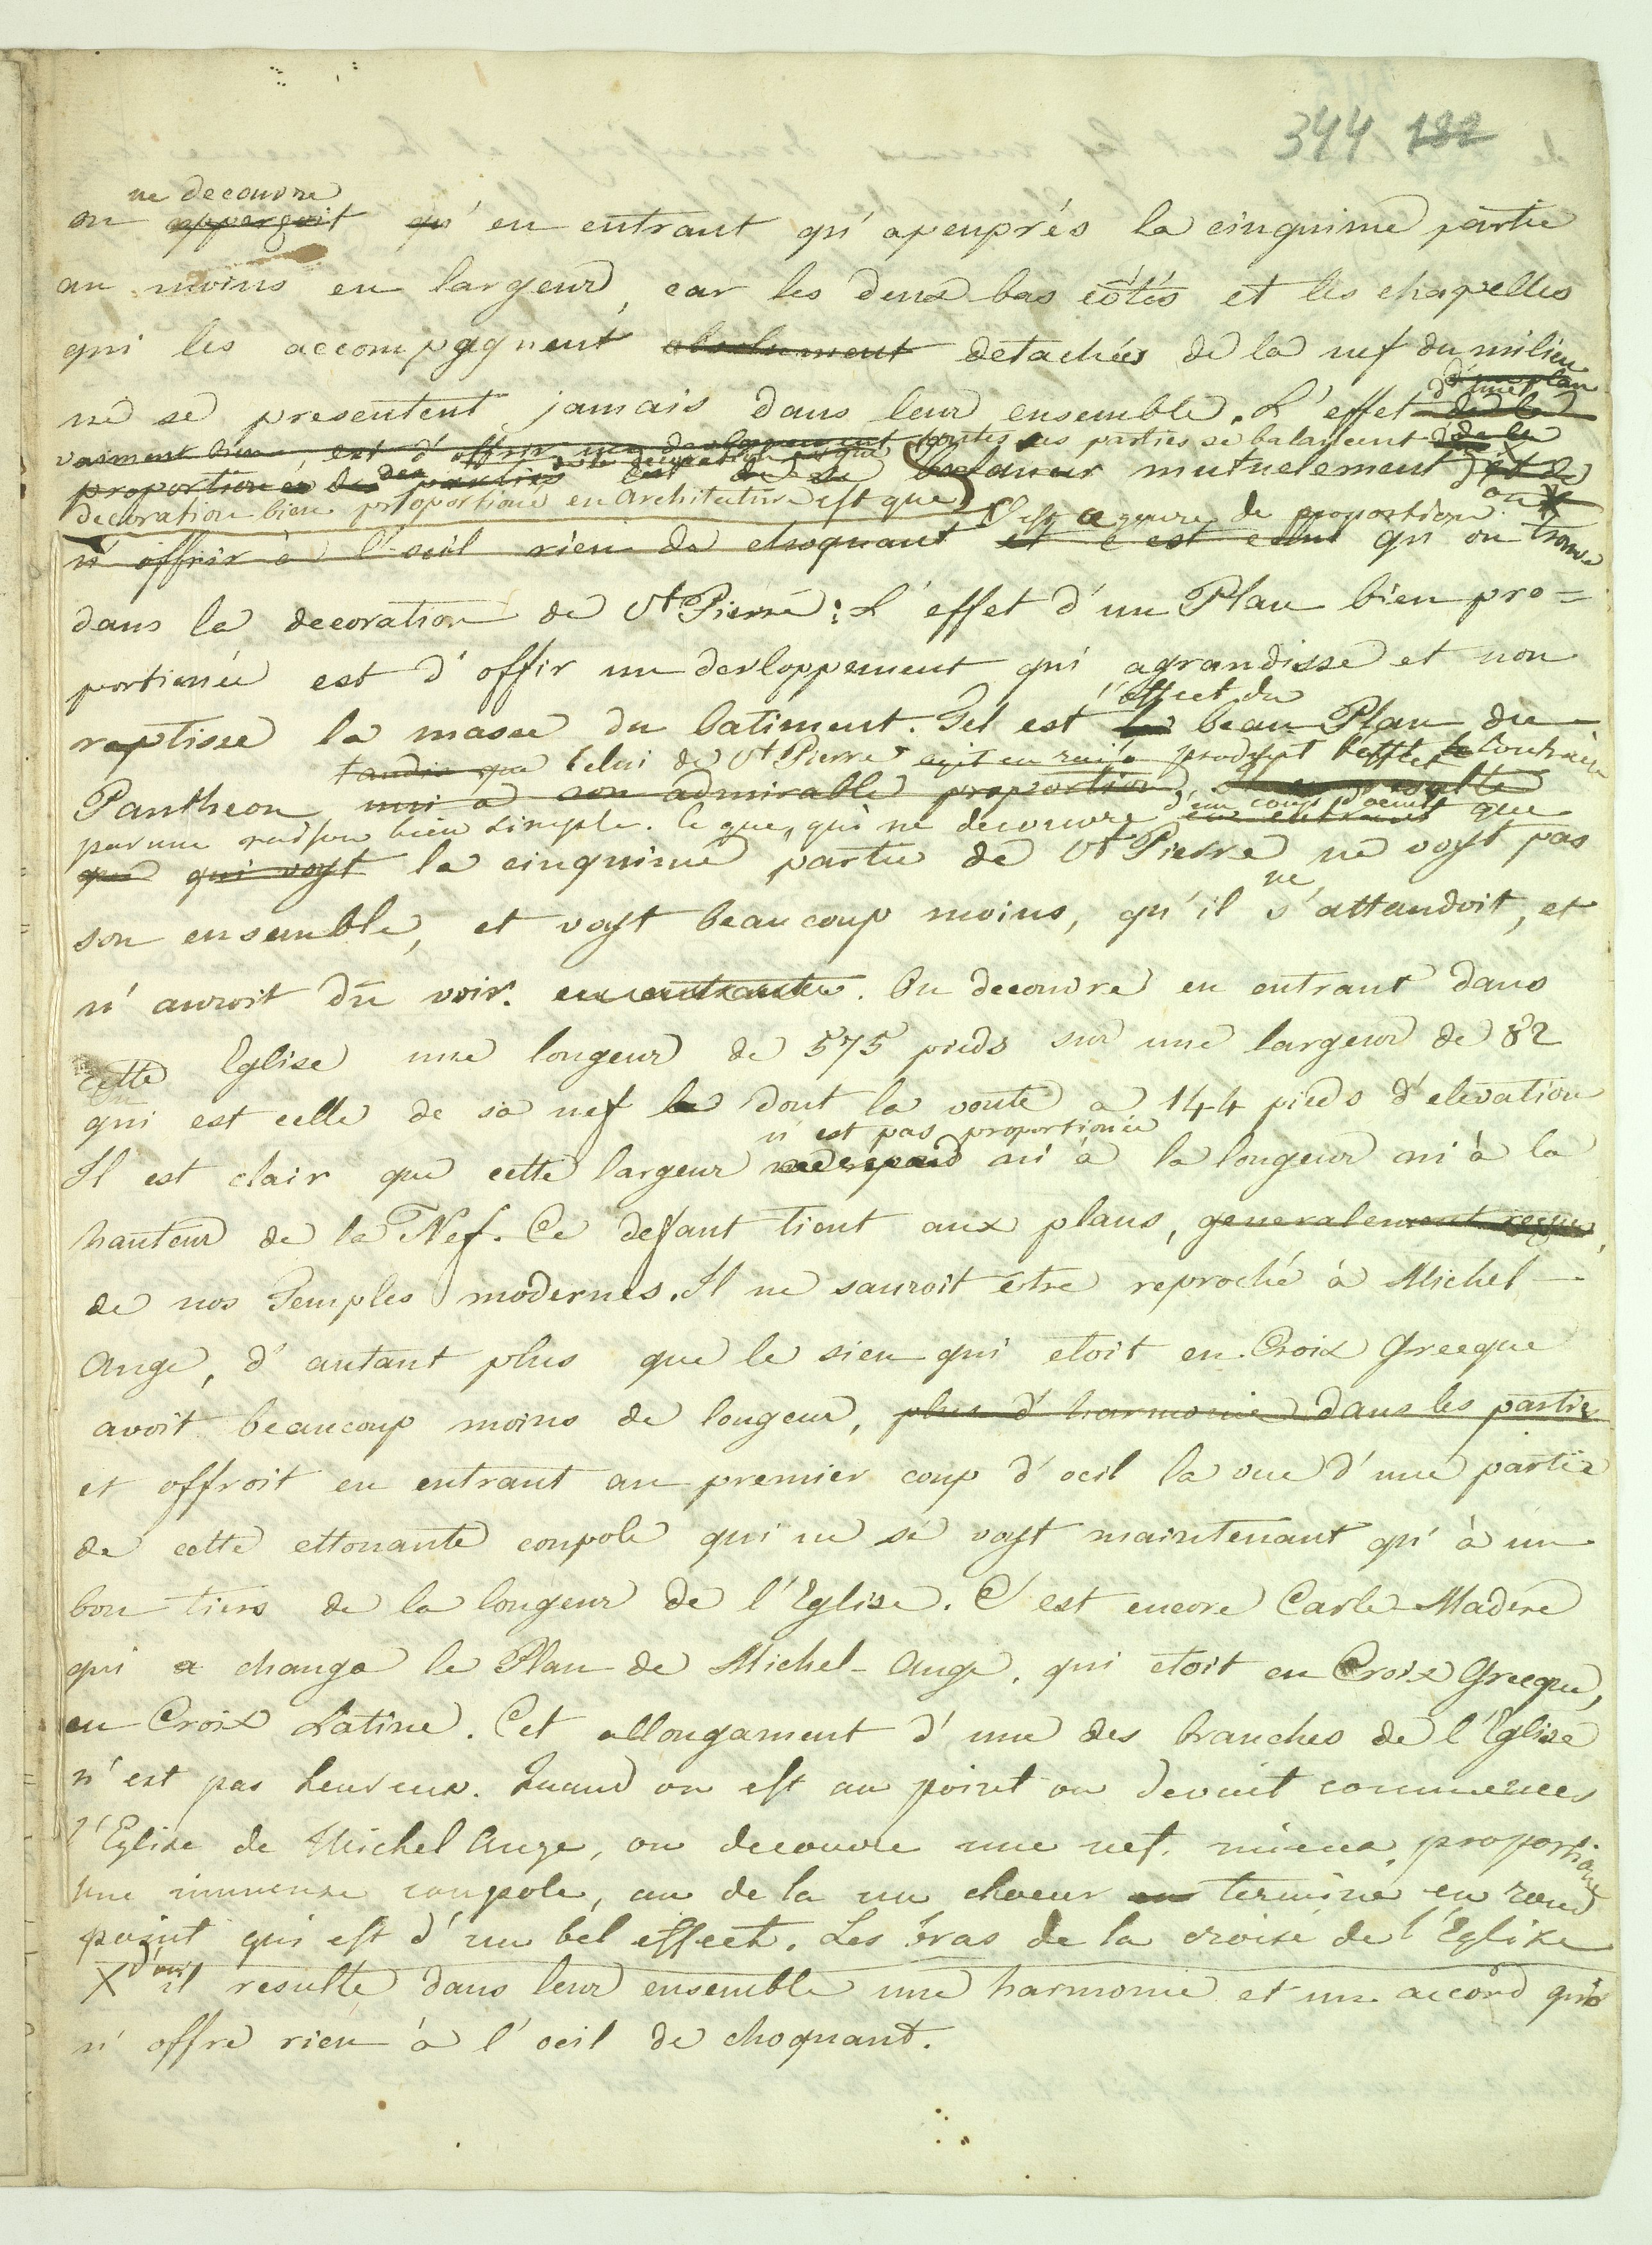 344 182
ne decouvre
on apperçoit qu' en entrant qu' apeuprés la cinquime partie
au moins en largeur, car les deux bas côtés et les chapelles
qui les accompagnent absolument detachées de la nef du milieu
ne se presentent jamais dans leur ensemble. L' effet d'une de la
vraiment bien est d' offrir un developpement toutes ses parties se balancent de la
proportion des parties est de se balancer mutuellement
decoration bien proportioné en Architecture est que C'est ce genre de proportion on
n' offrir à l' oeil rien de choquant et c'est celui qu' on trouve
dans la decoration de St Pierre: L' effet d' un Plan bien pro=
portionée est d' offir un devloppement qui agrandisse et non
l'effect du
raptisse la masse du batiment. Tel est le beau Plan du
tandis que Celui de St Pierre produit l'effet contraire
Pantheon admirable proportion,
par une raison bien simple. C'e que, qui ne decouvre d'un coup d'oeuil en entrant que
que qui voyt la cinquime partie de St Pierre ne voyt pas
ne
son ensemble, et voyt beaucoup moins, qu'il s'attandoit, et
n' auroit dû voir. en entrant. On decouvre en entrant dans
cette Eglise une longeur de 575 pieds sur une largeur de 82
qui est celle de sa nef dont la voute a 144 pieds d'elevation
n' est pas proportionée
Il est clair que cette largeur ni à la longeur ni à la
hauteur de la Nef. Ce defaut tient aux plans, generalement reçus,
de nos Temples modernes. Il ne sauroit être reproché à Michel-
Ange, d' autant plus que le sien qui etoit en Croix Grecque
avoit beaucoup moins de longeur, plus d' harmonie dans les parties
et offroit en entrant au premier coup d' oeil la vue d' une partie
de cette ettonante coupole qui ne se voyt maintenant qu' à un
bon tiers de la longeur de l' Eglise. C' est encore Carle Madere
qui a changé le Plan de Michel-Ange, qui etoit en Croix Grecque,
en Croix Latine. Cet allongament d' une des branches de l' Eglise
n' est pas heureux. Quand on est au point ou devait commencer
l' Eglise de Michel Ange, on decouvre une nef, mieux proportioné
une immense coupole, au de la un choeur en terminé en rond
point qui est d' un bel effect. Les bras de la croisé de l' Eglise
X d'ou il resulte dans leur ensemble une harmonie et un accord qui
n' offre rien à l' oeil de choquant.